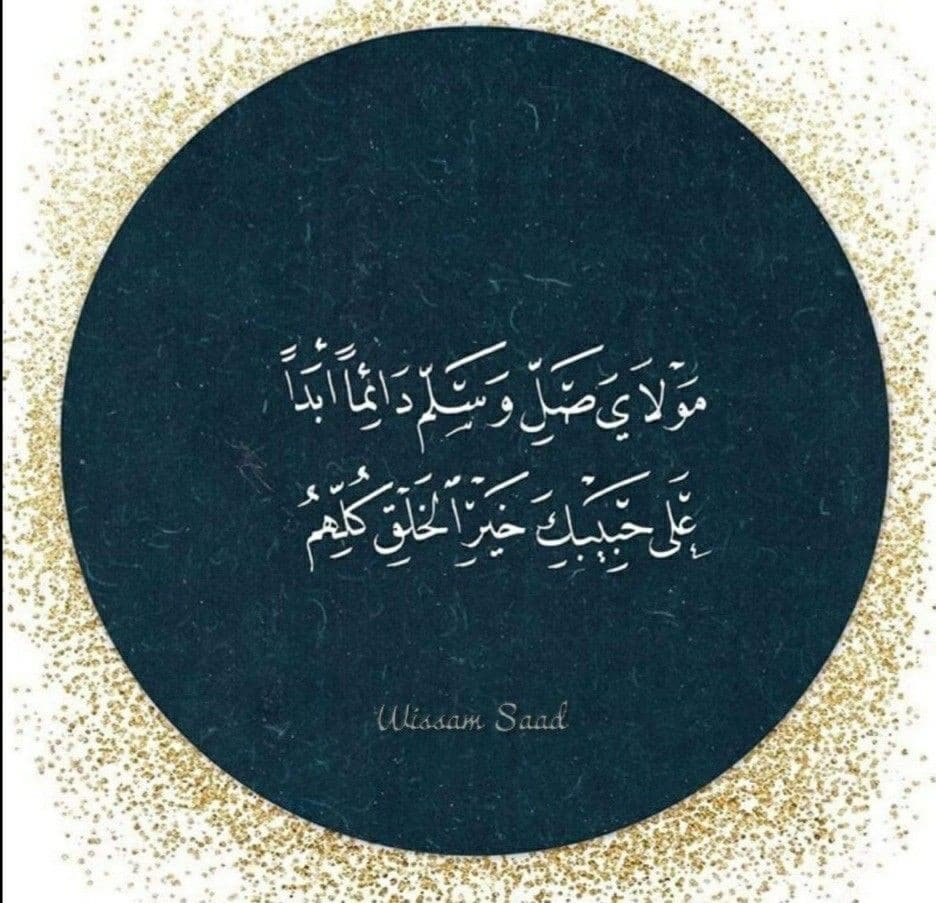 مَوْلَايَ صَلِّ وَسَلِّمْ دَائِماً أَبَداً
عَلَى حَبِيبِكَ خَيْرِ الْخَلْقِ كُلِّهِمُ
Wissam Saad